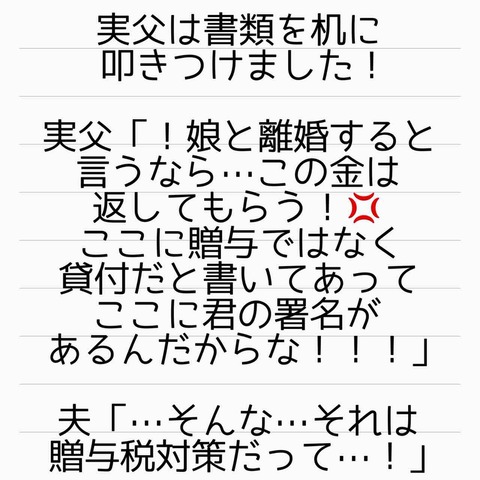 実父は書類を机に
叩きつけました！
実父「！娘と離婚すると
言うなら…この金は
返してもらう！💢
ここに贈与ではなく
貸付だと書いてあって
ここに君の署名が
あるんだからな！！！」
夫「…そんな…それは
贈与税対策だって…！」